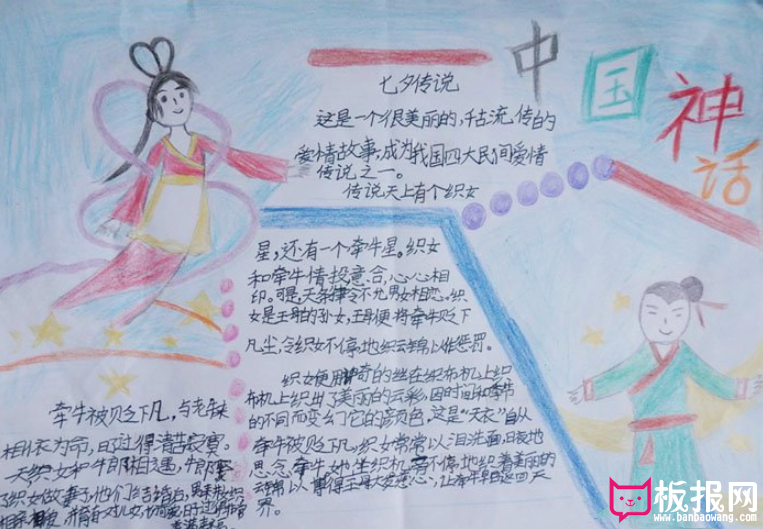 中国神话
七夕传说
这是一个很美丽的,千古流传的
爱情故事,成为我国四大民间爱情
传说之一。
传说天上有个织女
星,还有一个牵牛星。织女
和牵牛情投意合,心心相
印。可是,天条律令不允男女相恋。织
女是王母的孙女,王母便将牵牛贬下
凡尘,令织女不停地织云锦以作惩罚。
织女便用神奇的丝在织布机上织
布机上织出了美丽的云彩,因时间和季节
的不同而变幻它的颜色,这是"天衣"自从
牵牛被贬下凡,织女常常以泪洗面,日夜地
思念牵牛她坐织机旁不停地织着美丽的
云锦以博得王母大发慈心,让牵牛早日返回天
界。
牵牛被贬下凡,与老牛
相依为命,日子过得清苦寂寞。
一天织女和牛郎相遇,牛郎娶
了织女做妻子,他们结婚后,男耕女织
板报网
www.banbaowang.com